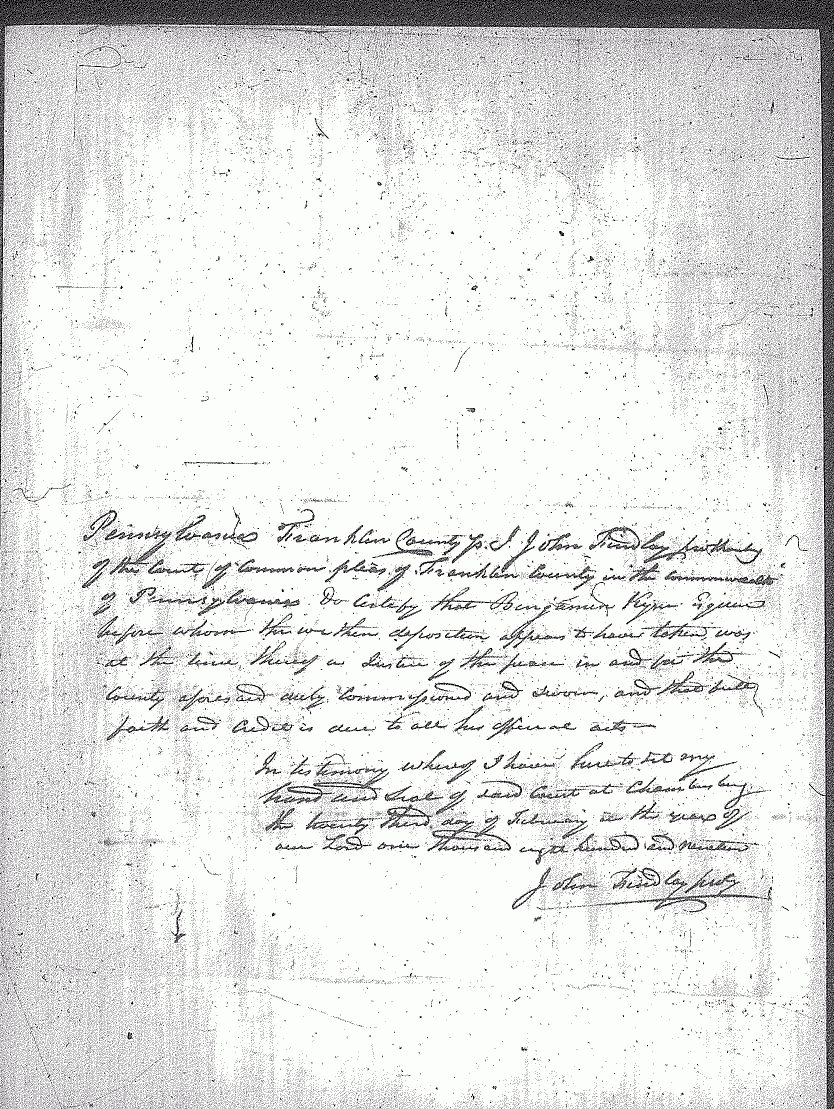 Pennsylvania Franklin County ss. I John Findlay prothonotary
of the Court of Common pleas of Franklin County in the commonwealth
of Pennsylvania Do Certify that Benjamin Esquire
before whom the deposition appears to have taken was
at the time thereof a Justice of the peace in and for the
County aforesaid duly Commissioned and sworn, and that full
faith and Credit is due to all his official acts—
In testimony whereof I have hereto set my
hand and seal of said Court at Chambersburg
the twenty third day of February in the year of
our Lord one thousand eight hundred and nineteen
John Findlay proty